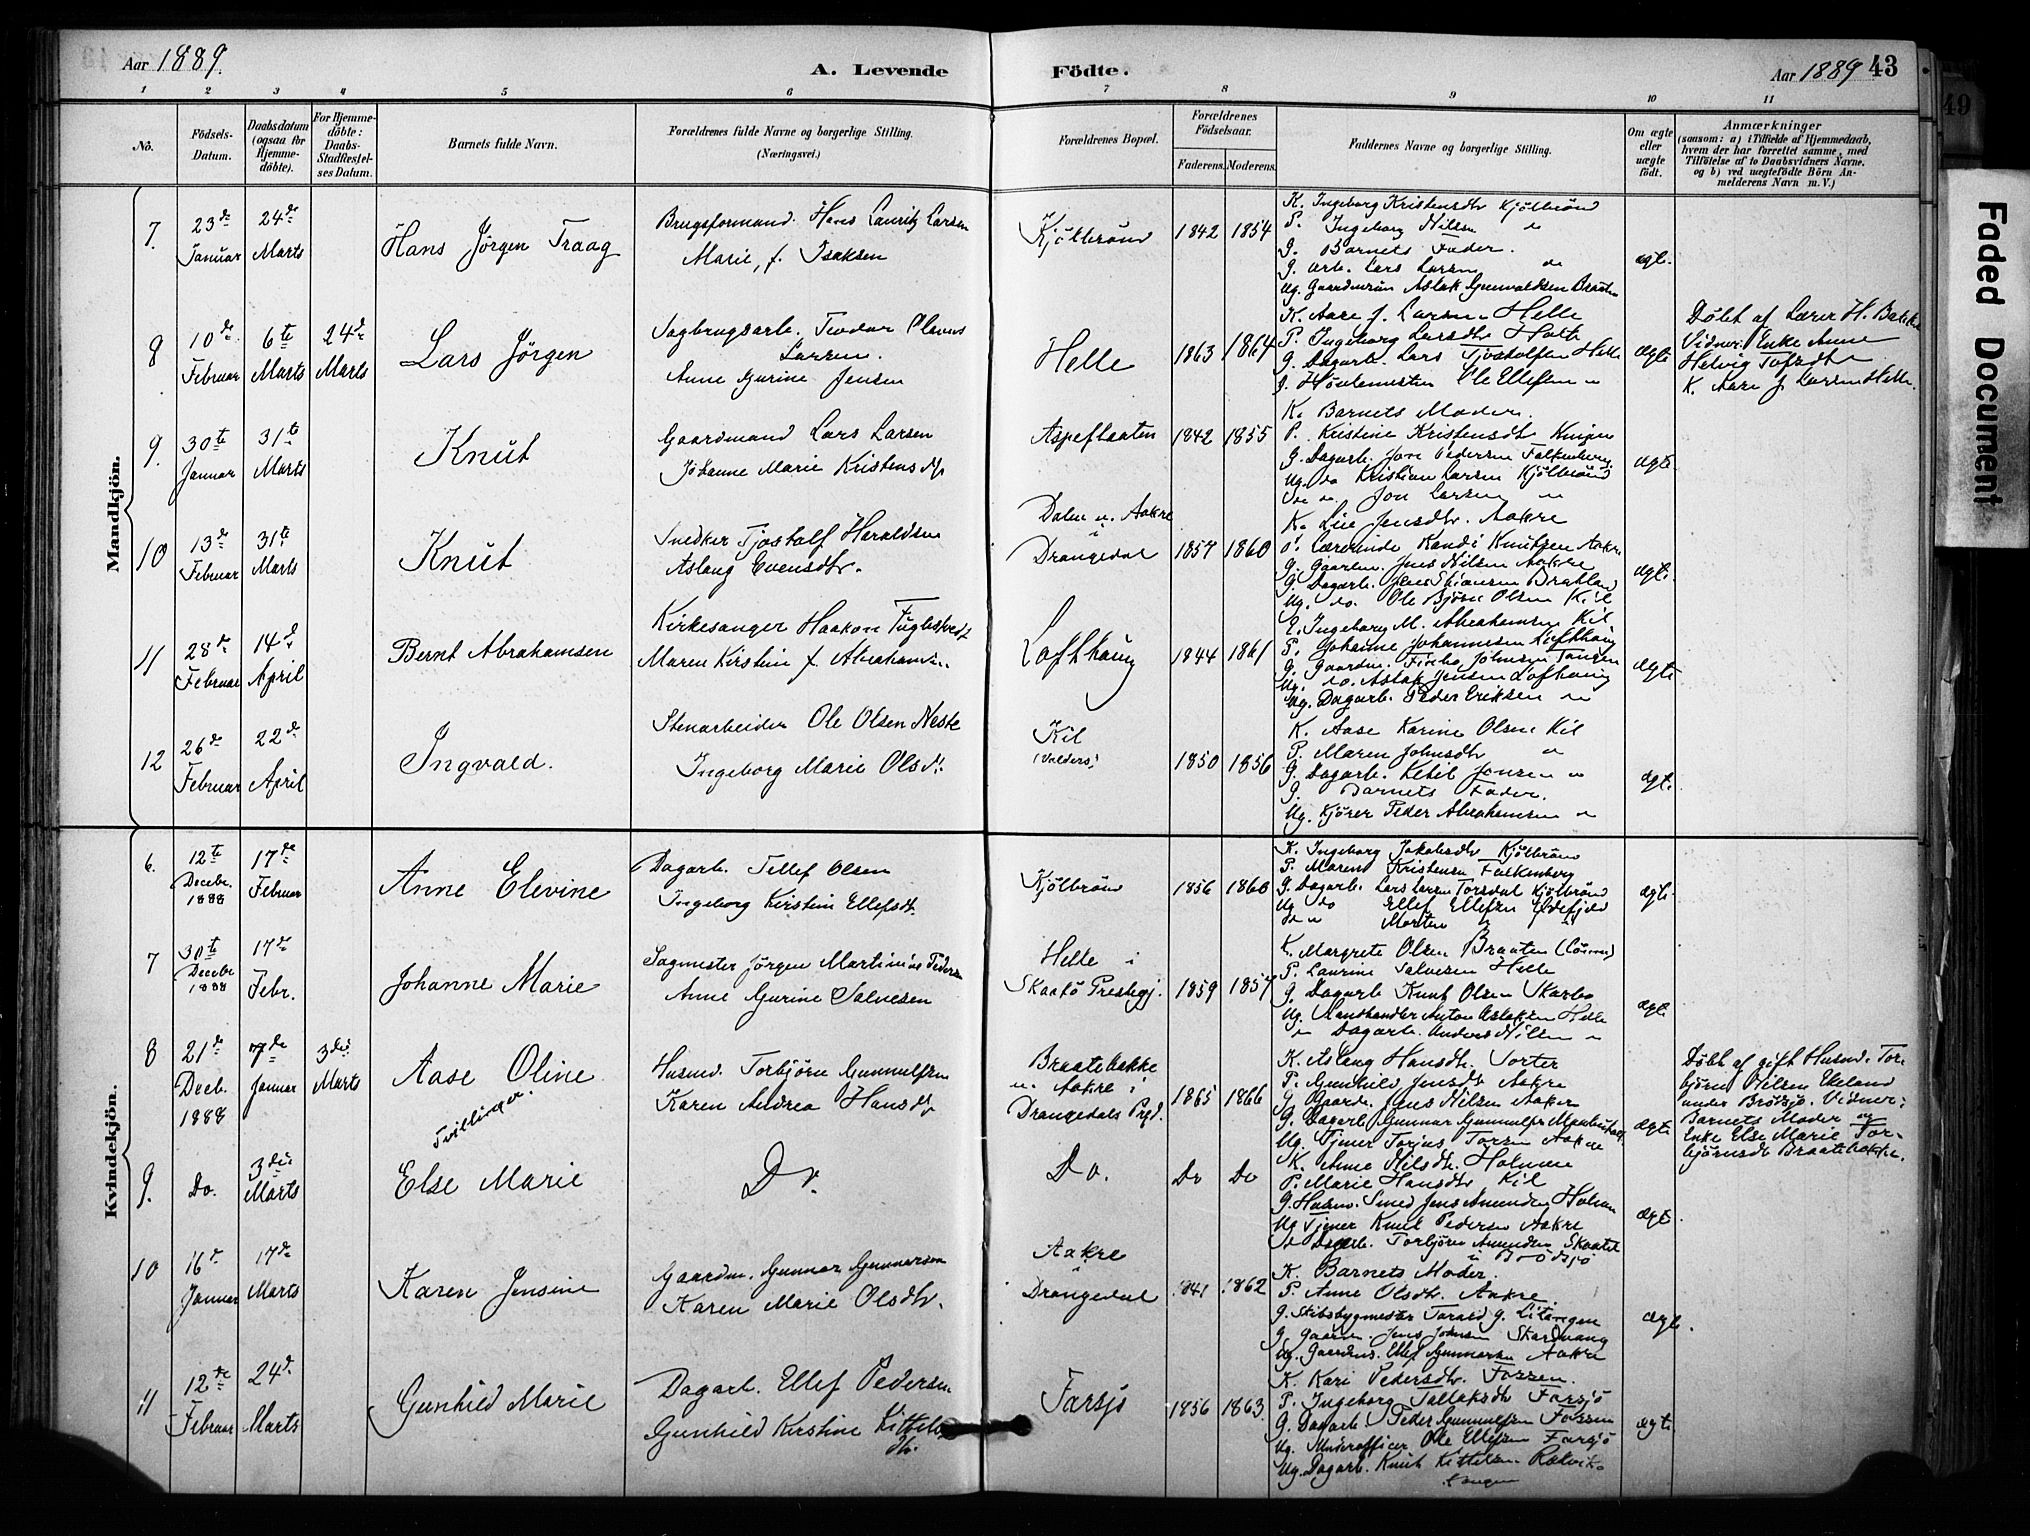 Aar 1889.
A. Levende Födte.
Aar 1889 43
1 2 3 4 5 6 7 8 9 10 11
No.
Födsels-Datum.
Daabsdatum (ogsaa for Hjemme-döbte).
For Hjemme-döbte: Daabs-Stadfæstel-ses Datum.
Barnets fulde Navn.
Forældrenes fulde Navne og borgerlige Stilling. (Næringsvei.)
Forældrenes Bopæl.
Forældrenes Födselsaar.
Faderens. Moderens.
Faddernes Navne og borgerlige Stilling.
Om ægte eller uægte födt.
Anmærkninger
(saasom: a) i Tilfælde af Hjemmedaab, hvem der har forrettet samme, med Tilföielse af to Daabsvidners Navne, og b) ved uægtefödte Börn Anmelderens Navn m. V.)
Mandkjön.
7. 23de Januar 24de Marts
Hans Jørgen Traag
Brugsformand. Hans Lauritz Larsen
Marie, f. Isaksen
Kjølbrønd 1842 1854
K. Ingeborg Kristensdtr Kjølbrønd
P. Ingeborg Nilsen
G. Barnets Fader.
G. arb. Lars Larsen
Ug. Gaardmand Aslak Gunvaldsen Braaten
ægte.
8 10de Februar 6te Marts 24de Marts
Lars Jørgen
Sagbrugsarb. Teodor Olaves Larsen.
Anne Gurine Jensen
Helle 1863 1864
K. Aase f. Larsen Helle
P. Ingeborg Larsdtr Holte
G. Dagarb. Lars Tjostolfsen Helle
G. Høvlemester Ole Ellefsen
ægte
Döbt af Lærer H. Bakke
Vidner: Enke Anne
Helvig Tofsdtr
K. Aase f. Larsen Helle.
9. 30te Januar 31te Marts
Knut
Gaardmand Lars Larsen
Johanne Marie Kristensdtr
Aspeflaaten 1842 1855
K. Barnets Moder.
P. Kristine Kristensdtr
G. Dagarb. Jon Pedersen Falkenberg
Ug. do Kristian Larsen Kjølbrønd
Jon Larsen
ægte
10 13de Februar 31te Marts
Knut
Snedker Tjostolf Haraldsen
Aslaug Evensdtr.
Dalen u. Aakre i Drangedal 1857 1860
K. Lise Jensdtr. Aakre
P. Lærerinde Kandi Knutsen Aakre
G. Gaardm. Jens Nilsen Aakre
G. Dagarb.
Ug. do. Ole Bjørn Olsen Kil
ægte.
11 28de Februar 14de April
Bernt Abrahamsen
Kirkesanger Haakon Fuglestvedt
Maren Kirstine f. Abrahamsen
Lofthaug 1844 1861
K. Ingeborg M. Abrahamsen Kil
P. Johanne Johannesen Lofthaug
G. Gaardm. Johnsen Tangen
Ug. do. Aslak Jensen Lofthaug
Ug. Dagarb. Peder Eriksen
ægte
12 26de Februar 22de April
Ingvald.
Stenarbeider Ole Olsen Neste
Ingeborg Marie Olsdtr.
Kil (Valders) 1850 1856
K. Aase Karine Olsen Kil
P. Maren Johnsdtr
G. Dagarb. Ketil Jonsen
G. Barnets Fader.
Ug. Kjører Peder Abrahamsen
ægte.
Kvindekjön.
6. 12te Decebr. 1888 17de Februar
Anne Elevine
Dagarb. Tellef Olsen
Ingeborg Kirstine Ellefsdtr.
Kjølbrønd 1856 1860
K. Ingeborg Jakobsdtr Kjølbrønd
P. Maren Kristensen Falkenberg
G. Dagarb. Lars Larsen Torsdal Kjølbrønd
Ug do Ellef Ellefsen
Morten
ægte.
7 30te Decebr 1888 17de Febr.
Johanne Marie
Sagmester Jørgen Martinius Pedersen
Anne Gurine Salvesen
Helle i Skaatö Prestegj. 1859 1857
K. Margrete Olsen Braaten
P. Laurine Salvesen Helle
G. Dagarb Knut Olsen Skarbo
Ug. Landhandler Anton Aslaksen Helle
Dagarb. Anders Nilsen
ægte
8 21de Decb. 1888 7de Januar 3die Marts
Aase Oline
Tvillinger.
Husmd. Torbjörn Gunnulfsen
Karen Andrea Hansdtr
Braatebakke u. Aakre i Drangedals Prgd. 1865 1866
K. Aslaug Hansdtr. Torter
P. Gunhild Jensdtr Aakre
G. Gaardm. Jens Nilsen Aakre
G. Dagarb. Gunnar Gunnulfsen
Ug. Tjener Torjus Torsen Aakre
ægte
Döbt af gift Husmd. Tor-
björn Nilsen Ekeland
under Brödsjö. Vidner:
Barnets Moder og
Enke Else Marie Tor-
björnsdtr Braatebakke.
9. Do. 3die Marts
Else Marie
Do.
Do. Do Do
K. Anne Nilsdtr. Holmen
P. Marie Hansdtr Kil
G. Husm. Smed Jens Amundsen Holmen
Ug Tjener Knut Pedersen Aakre
Dagarb. Torbjörn Amundsen
i Brödsjö
ægte.
10 16de Januar 17de Marts
Karen Jensine
Gaardm. Gunnar Gunnarsen
Karen Marie Olsdtr.
Aakre i Drangedal 1841 1862
K. Barnets Moder.
P. Anne Olsdtr. Aakre
G. Skibsbygmester Tarald G.
G. Gaardm. Jens Johnsen Skardvang
Ug. Gaardms. Ellef Gunnarsen Aakre
ægte.
11 12te Februar 24de Marts
Gunhild Marie
Dagarb. Ellef Pedersen
Gunhild Kirstine Kittelsdtr.
Farsjö 1856 1863
K. Kari Pedersdtr. Fossen.
P. Ingeborg Tallaksdtr Farsjö
G. Dagarb. Peder Gunnulfsen Fossen
Ug. Underofficer Ole Ellefsen Farsjö
Ug. Dagarb. Knut Kittelsen
tangen
ægte
Faded Document
49